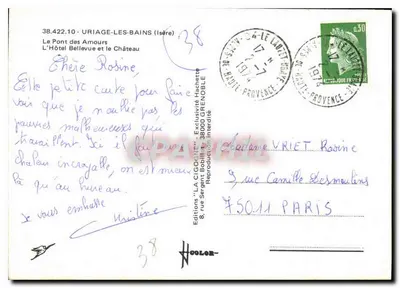 38.422.10 - URIAGE-LES-BAINS (Isère)
Le Pont des Amours
L'Hôtel Bellevue et le Château
38
Chère Rosine,
Cette petite carte pour faire
voir que je n'oublie pas les
pauvres malheureuses qui
travaillent. Ici il fait une
chaleur incroyable, on est mieux
là qu'au bureau.
Je vous embrasse
Christine
38
Editions "LA CIGOGNE" - Exclusivité Hachette
8, rue Sergent Bobillot 38000 GRENOBLE
Reproduction interdite
COLOR
04-LE LAUZET-UBAYE
17 H
2-7
1974
HAUTE-PROVENCE
0,30
VRIET Rosine
9 rue Camille Desmoulins
75011 PARIS